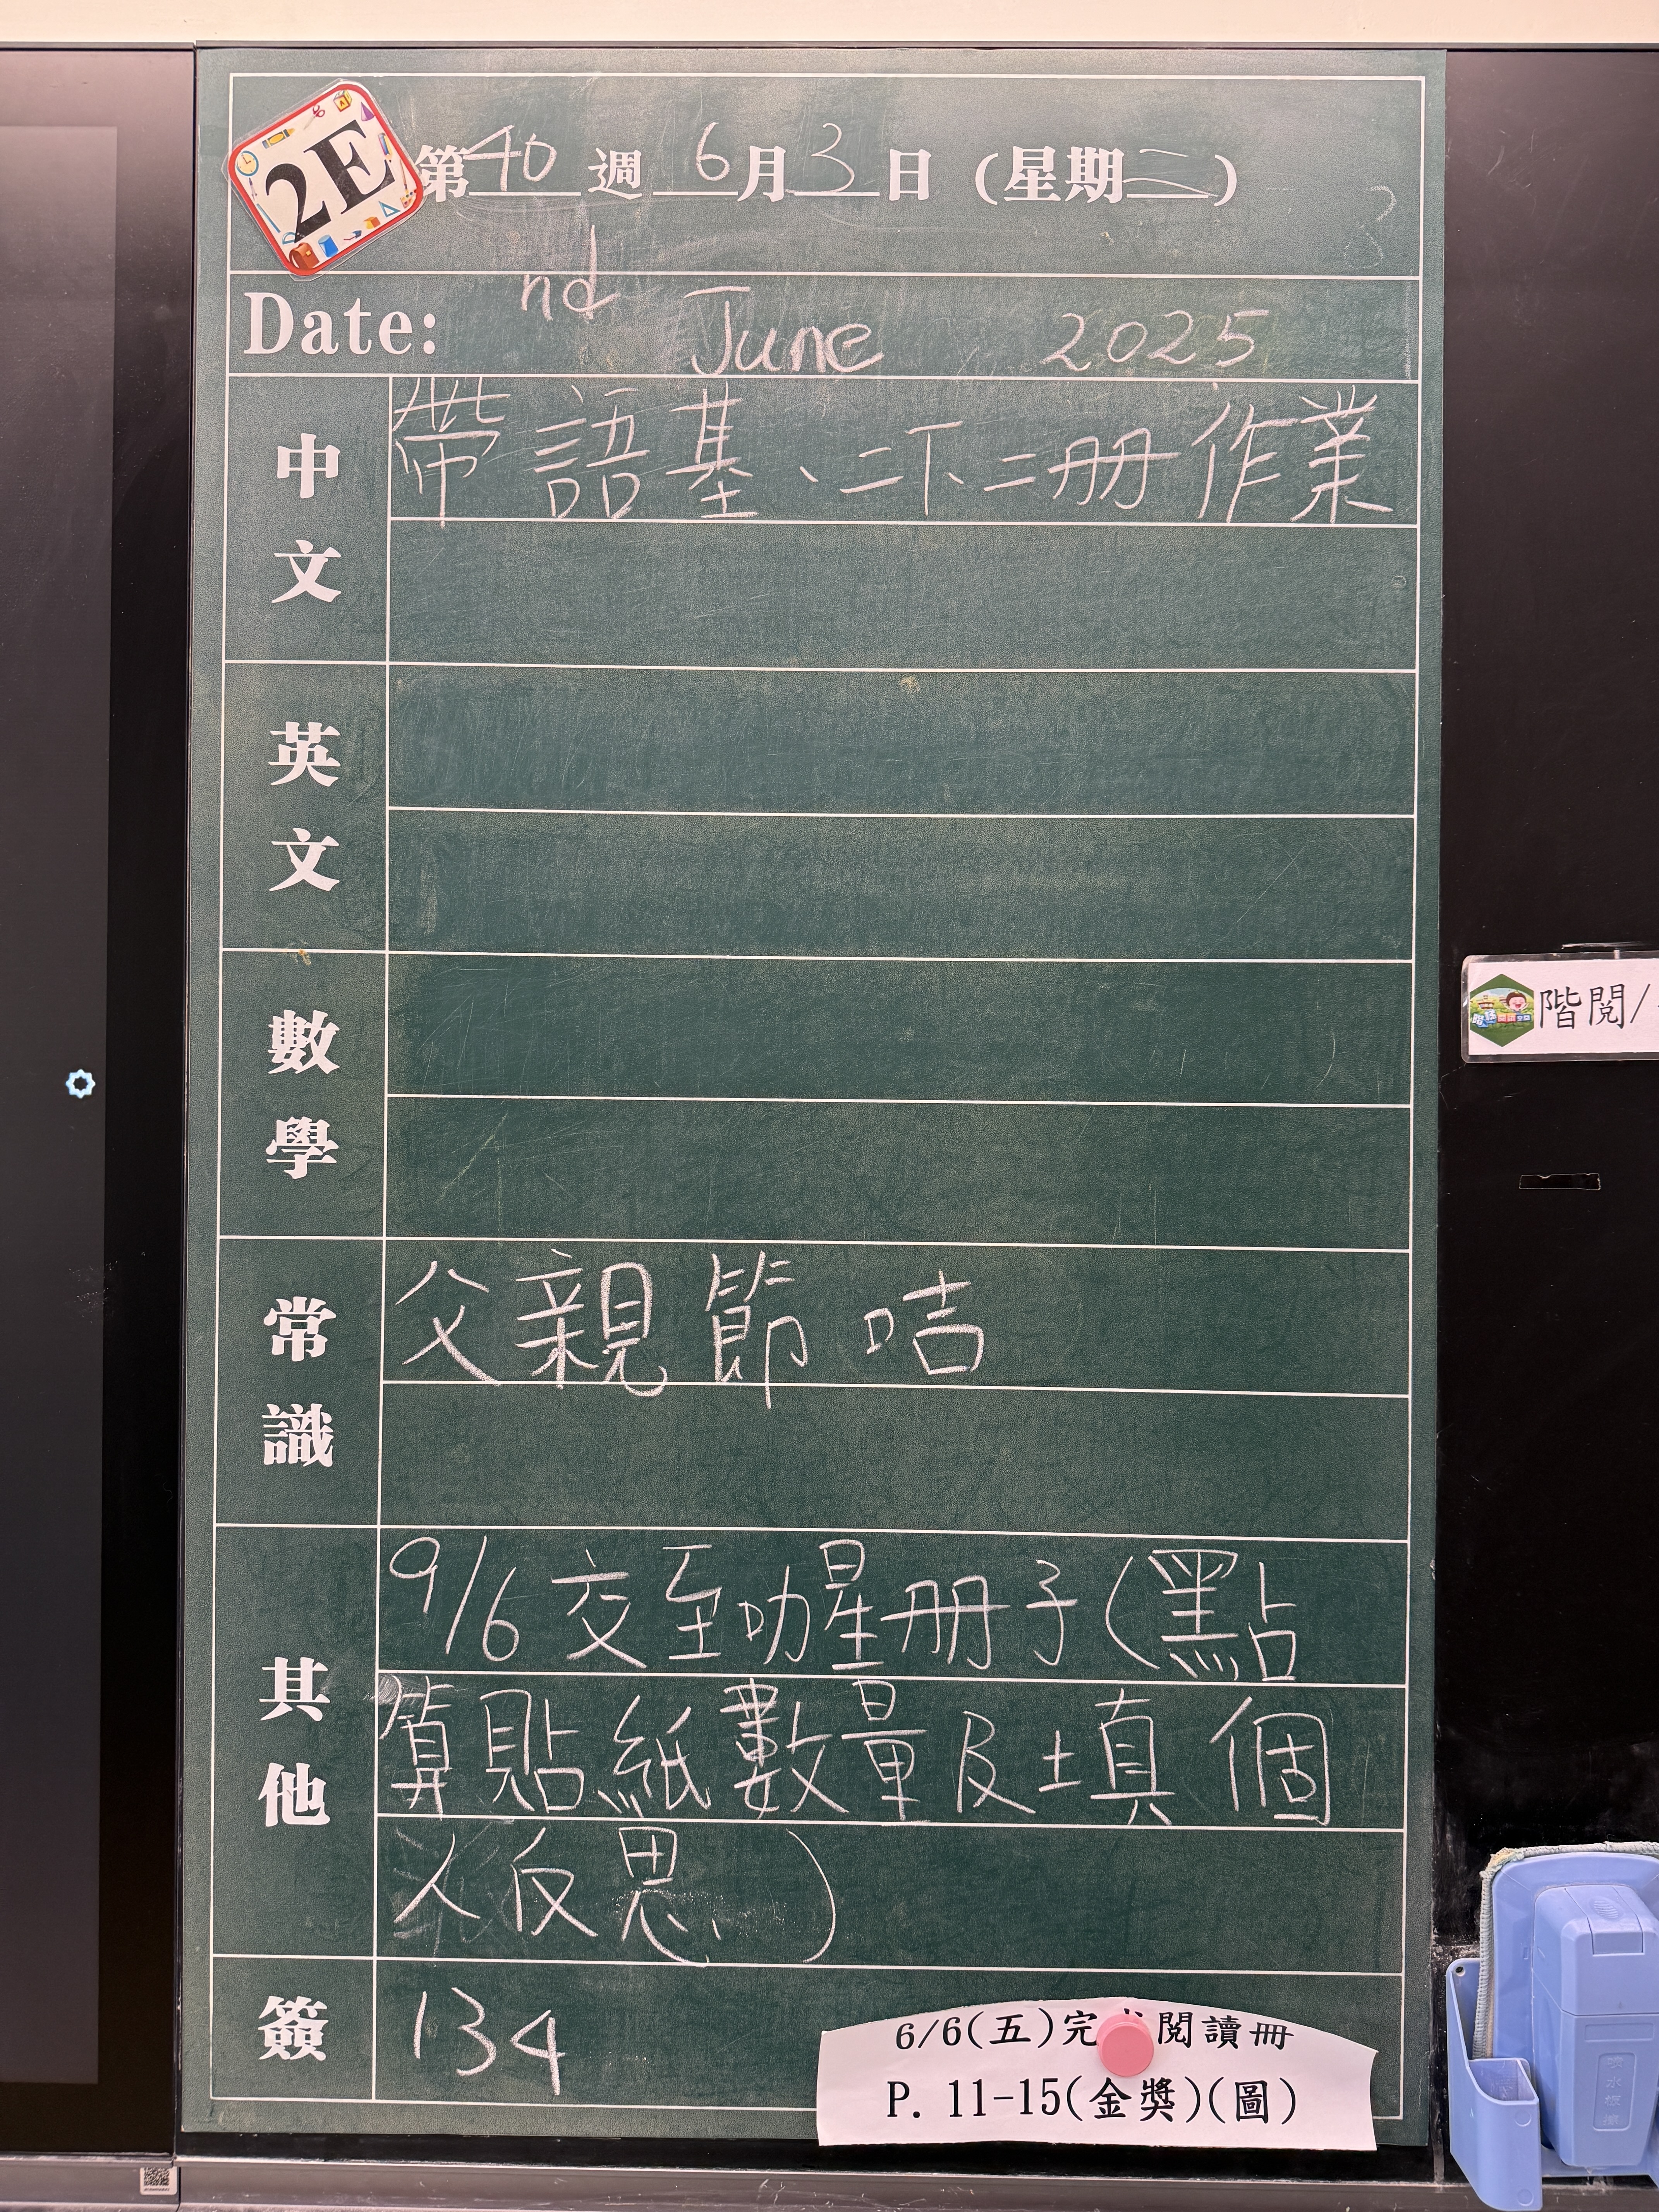 2E
第40週 6月3日 (星期二)
Date: nd June 2025
中文
帶語基、二下二冊作業
英文
數學
常識
父親節咭
其他
9/6交至叻星冊子(點
算貼紙數量及填個
人反思)
簽
134
6/6(五)完 閱讀冊
P. 11-15(金獎)(圖)
階閱/